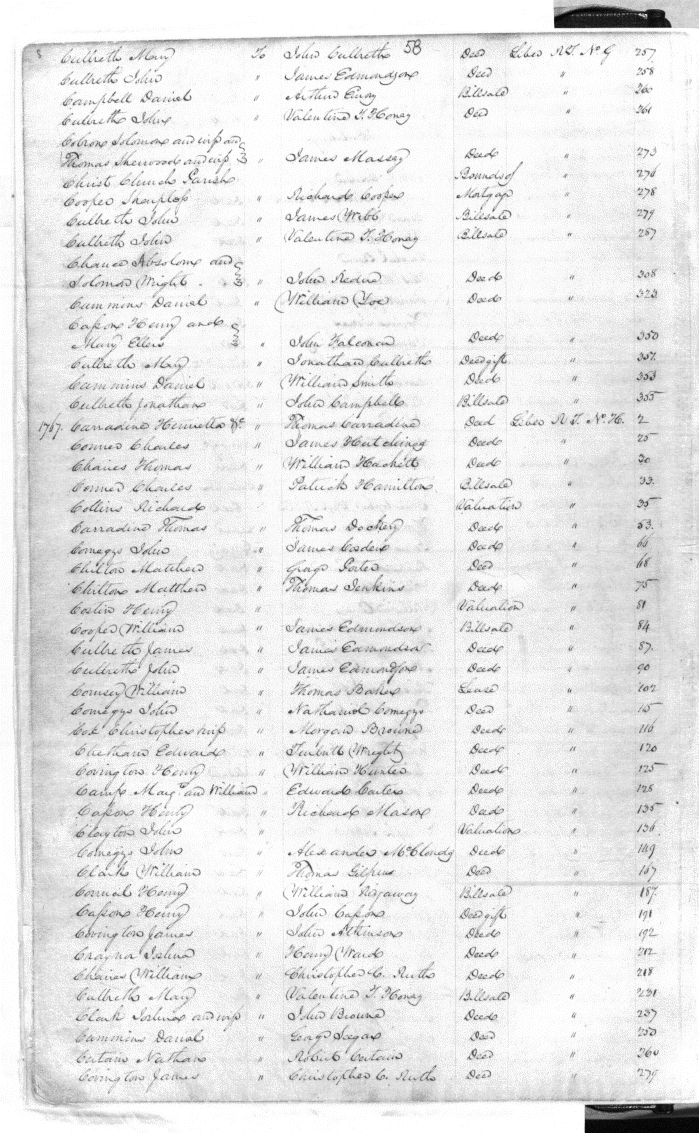 8 58
Culbreth Mary To John Culbreth Deed Liber R.T. No. G 257
Culbreth John " James Edmondson Deed " 258
Campbell Daniel " Arthur Emory Billsale " 260
Culbreth John " Valentine T. Honey Deed " 261
Thomas Sherwood and wife " James Massey Deed " 273
Christ Church Parish Bounds of " 276
Cooper " Richard Cooper Mortgage " 278
Culbreth John " James Webb Billsale " 279
Culbreth John " Valentine T. Honey Billsale " 287
Chance Absolom and
Solomon Wright " John Deed " 308
Cummins Daniel " William Deed " 323
Casson Henry and
Mary Ellers " John Falconar Deed " 350
Culbreth Mary " Jonathan Culbreth Deed gift " 351
Cummins Daniel " William Smith Deed " 353
Culbreth Jonathan " John Campbell Billsale " 355
1767. Carradine Henrietta &c " Thomas Carradine Deed Liber R.T. No. H. 2
Conner Charles " James Hutchings Deed " 25
Chaires Thomas " William Hackett Deed " 30
Conner Charles " Patrick Hamilton Billsale " 33
Collins Richard Valuation " 35
Carradine Thomas " Thomas Dockery Deed " 53
Comegys John " James Deed "
Chilton Matthew " George Porter Deed " 68
Chilton Matthew " Thomas Jenkins Deed " 75
Costin Henry " Valuation " 81
Cooper William " James Edmondson Billsale " 84
Culbreth James " James Edmondson Deed " 87
Culbreth John " James Edmondson Deed " 90
William " Thomas Baker Lease " 102
Comegys John " Nathaniel Comegys Deed "
Cox Christopher " Morgan Browne Deed " 116
Chetham Edward " Turbutt Wright Deed " 120
Covington Henry " William Hunter Deed " 125
Camp Marg.t an William " Edward Carter Deed " 128
Casson Henry " Richard Mason Deed " 135
Clayton John " Valuation " 136
Comegys John " Alexander Deed " 149
Clark William " Thomas Gilpin Deed " 167
Henry " William Ridgaway Billsale " 187
Casson Henry " John Casson Deed gift " 191
Covington James " John Atkinson Deed " 192
" Henry Ward Deed " 212
Chaires William " Christopher C. Ruth Deed " 218
Culbreth Mary " Valentine T. Honey Billsale " 231
Clark Joshua and wife " John Browne Deed " 237
Cummins Daniel " George Seegar Deed " 250
Nathan " Robert Deed " 260
Covington James " Christopher C. Ruth Deed " 279